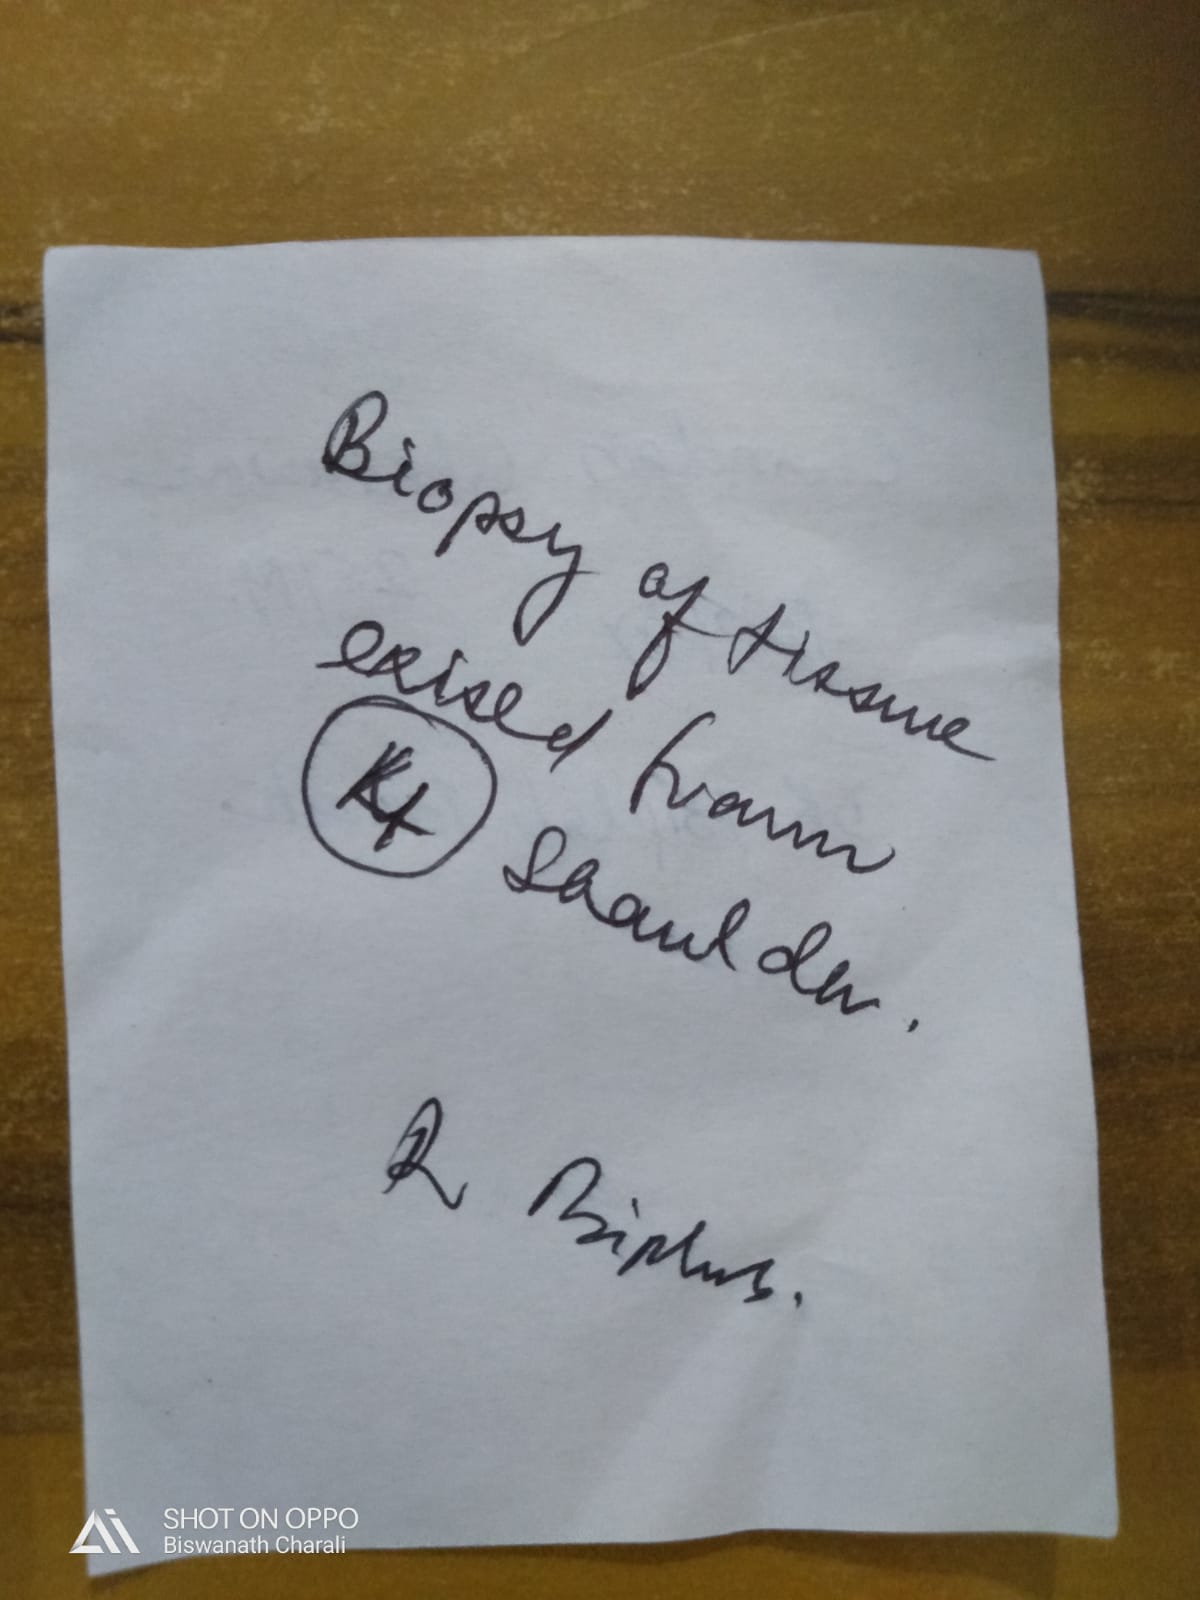 Biopsy of tissue
exised from
Rt Shoulder.
R Biplus.
SHOT ON OPPO
Biswanath Charali